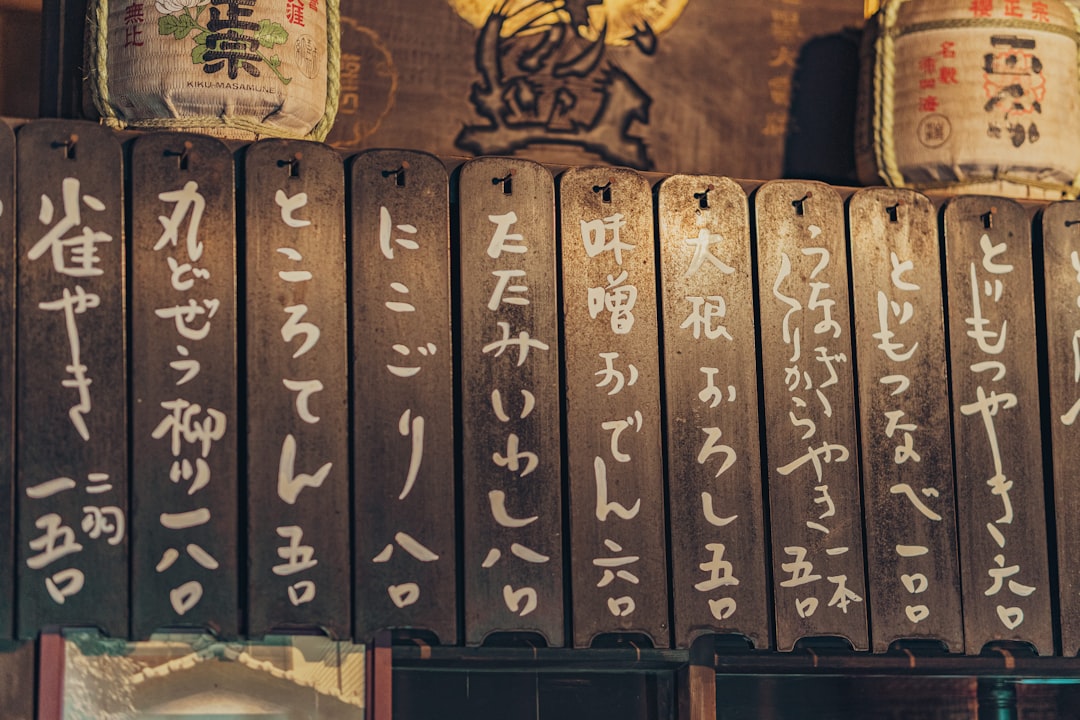 とりもつやき 六〇
どじょつなべ 一〇〇
うなぎくりからやき 一本 五〇
大根おろし 五〇
味噌おでん 六〇
たたみいわし 八〇
にこごり 八〇
ところてん 五〇
丸どぜう柳川 一八〇
雀やき 二羽 一五〇
正宗
KIKU-MASAMUNE